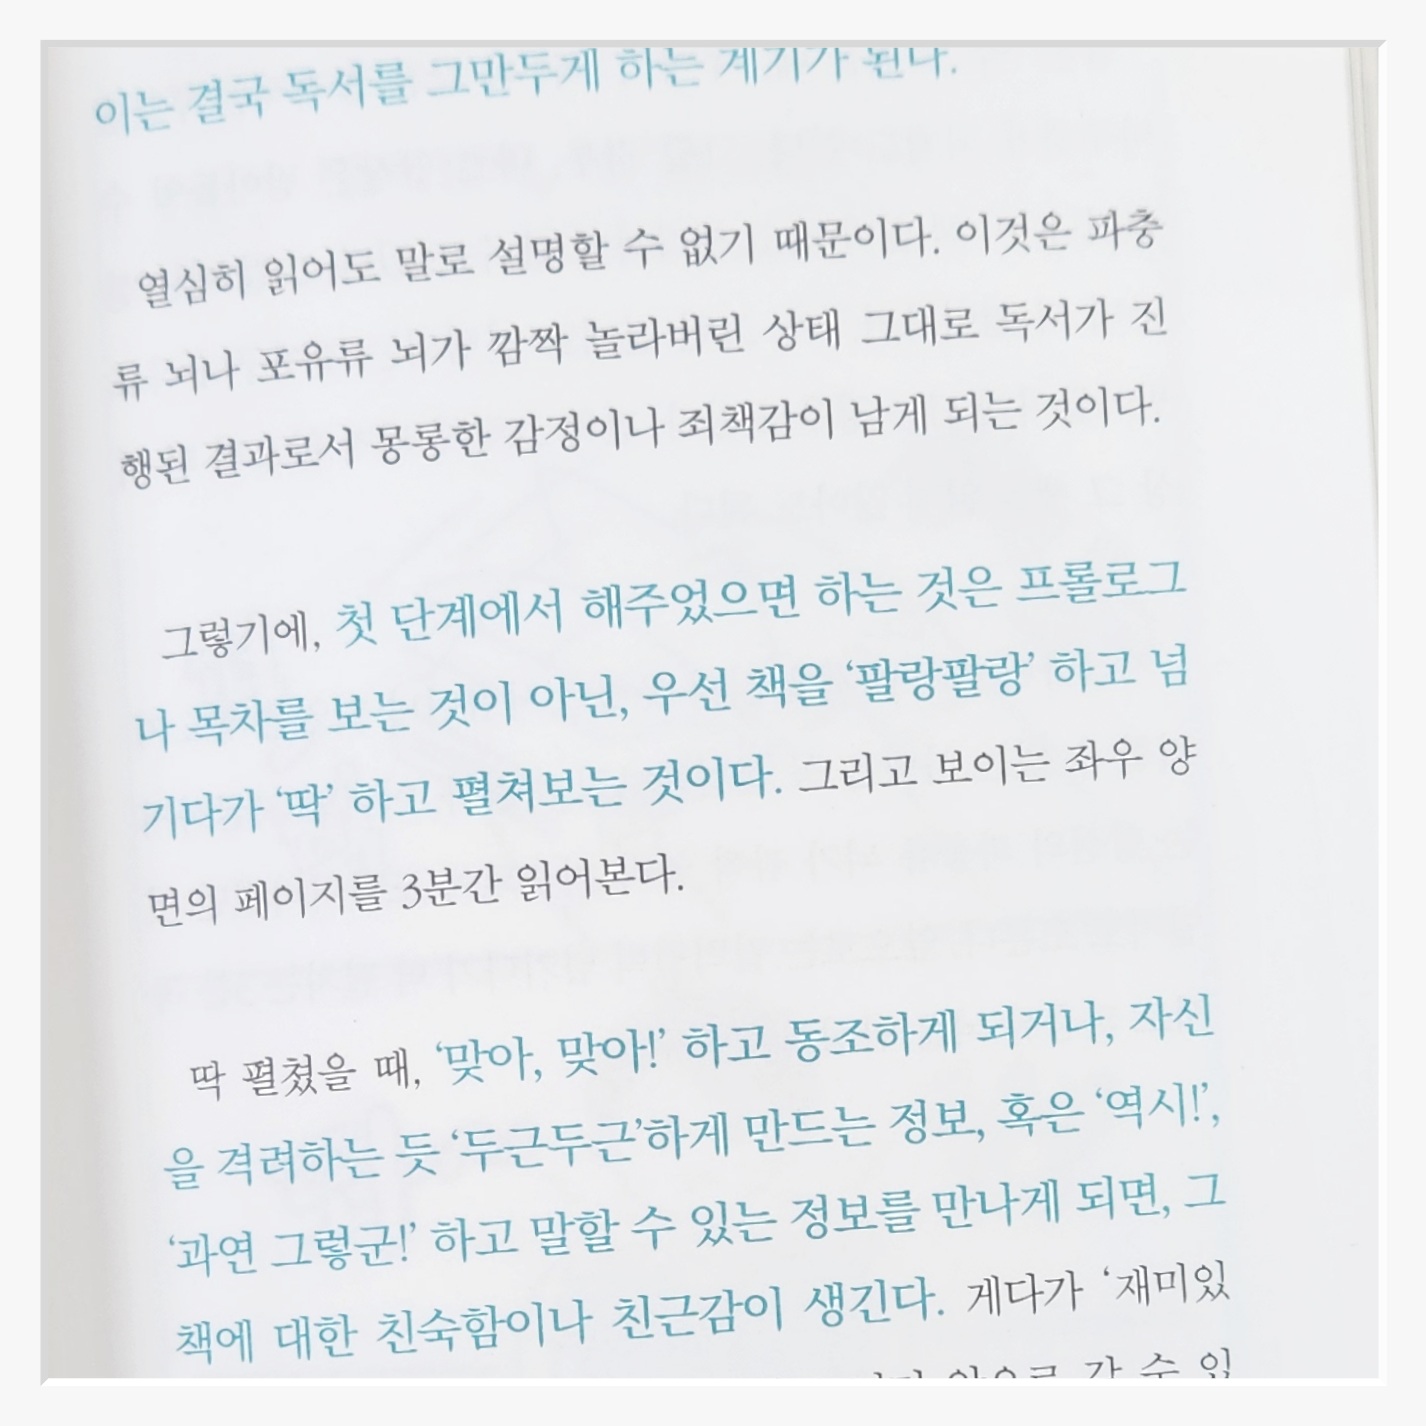 이는 결국 독서를 그만두게 하는 계기가 된다.
열심히 읽어도 말로 설명할 수 없기 때문이다. 이것은 파충
류 뇌나 포유류 뇌가 깜짝 놀라버린 상태 그대로 독서가 진
행된 결과로서 몽롱한 감정이나 죄책감이 남게 되는 것이다.
그렇기에, 첫 단계에서 해주었으면 하는 것은 프롤로그
나 목차를 보는 것이 아닌, 우선 책을 ‘팔랑팔랑’ 하고 넘
기다가 ‘딱’ 하고 펼쳐보는 것이다. 그리고 보이는 좌우 양
면의 페이지를 3분간 읽어본다.
딱 펼쳤을 때, ‘맞아, 맞아!’ 하고 동조하게 되거나, 자신
을 격려하는 듯 ‘두근두근’하게 만드는 정보, 혹은 ‘역시!’,
‘과연 그렇군!’ 하고 말할 수 있는 정보를 만나게 되면, 그
책에 대한 친숙함이나 친근감이 생긴다. 게다가 ‘재미있
앞으로 갈 수 있